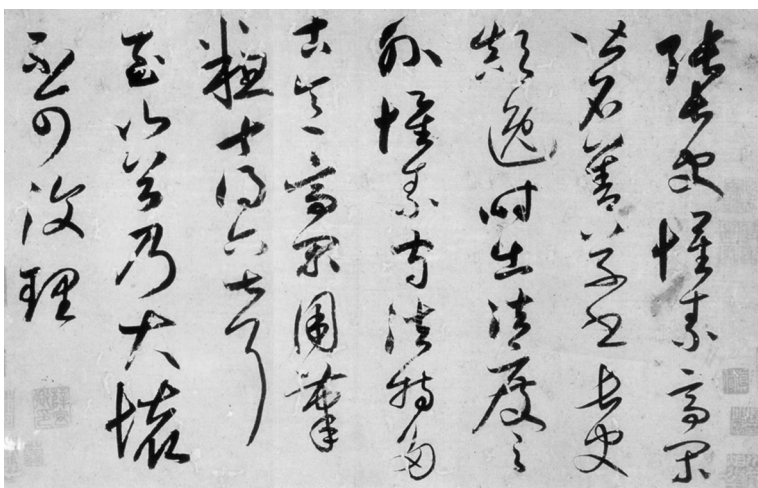 張長史懷素高閑
皆名善草書長史
顛逸時出法度之
外懷素守法特多
古意高閑用筆
麤十得六七耳
至山谷乃大壞
不可復理